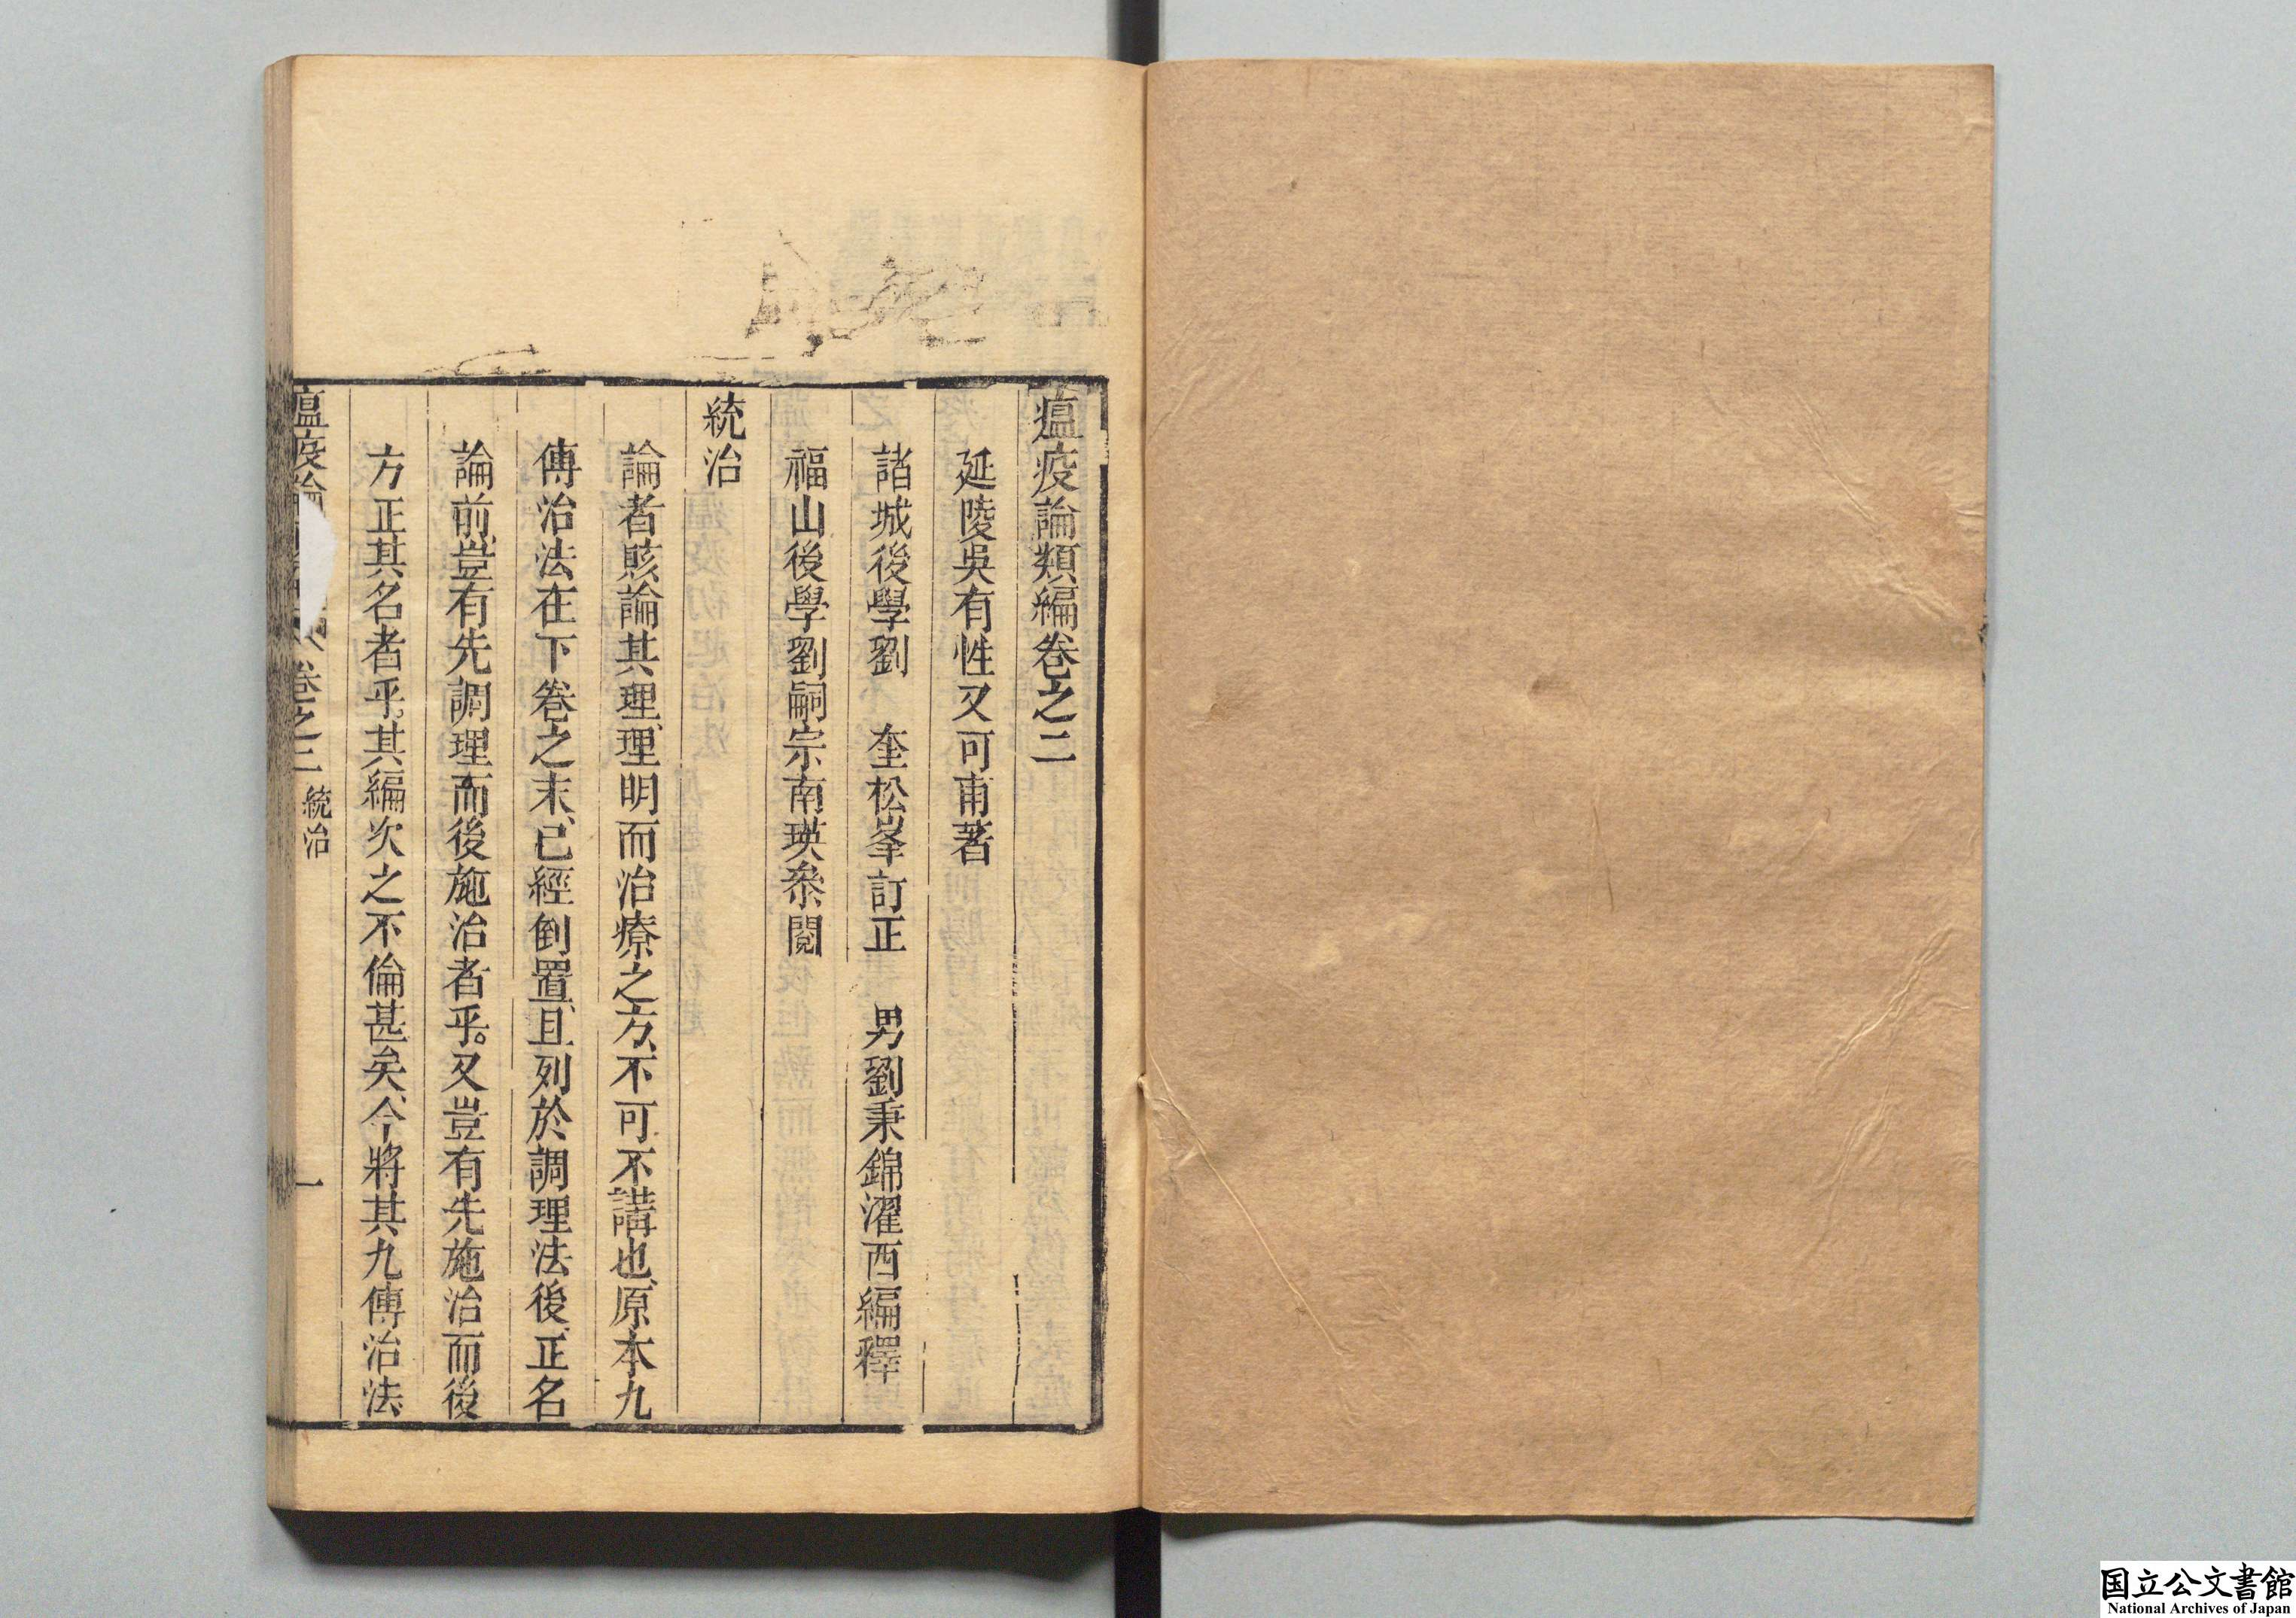 瘟疫論類編卷之二
延陵吳有性又可甫著
諸城後學劉　奎松峯訂正　男劉秉錦濯西編釋
福山後學劉嗣宗南瑛叅閱
統治
論者賅論其理、理明而治療之方、不可不講也、原本九
傳治法在下卷之末、已經倒置、且列於調理法後、正名
論前、豈有先調理而後施治者乎。又豈有先施治而後
方正其名者乎。其編次之不倫甚矣、今將其九傳治法、
瘟疫論
卷之二
統治
一
国立公文書館
National Archives of Japan